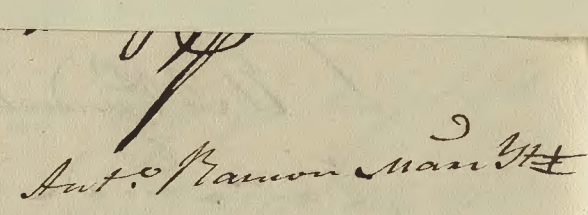 Ant.º Ramon Man